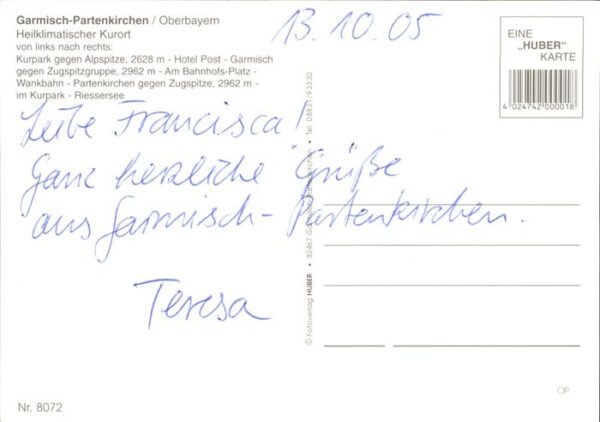 Garmisch-Partenkirchen / Oberbayern
Heilklimatischer Kurort
von links nach rechts:
Kurpark gegen Alpspitze, 2628 m - Hotel Post - Garmisch
gegen Zugspitzgruppe, 2962 m - Am Bahnhofs-Platz -
Wankbahn - Partenkirchen gegen Zugspitze, 2962 m -
im Kurpark - Riessersee
13.10.05
EINE
„HUBER"
KARTE
4 024742 000018
Liebe Francisca!
Ganz herzliche Grüße
aus Garmisch-Partenkirchen.
Teresa
© Fotoverlag HUBER • 82467 Garmisch-Partenkirchen • Tel. 08821/93330
Nr. 8072